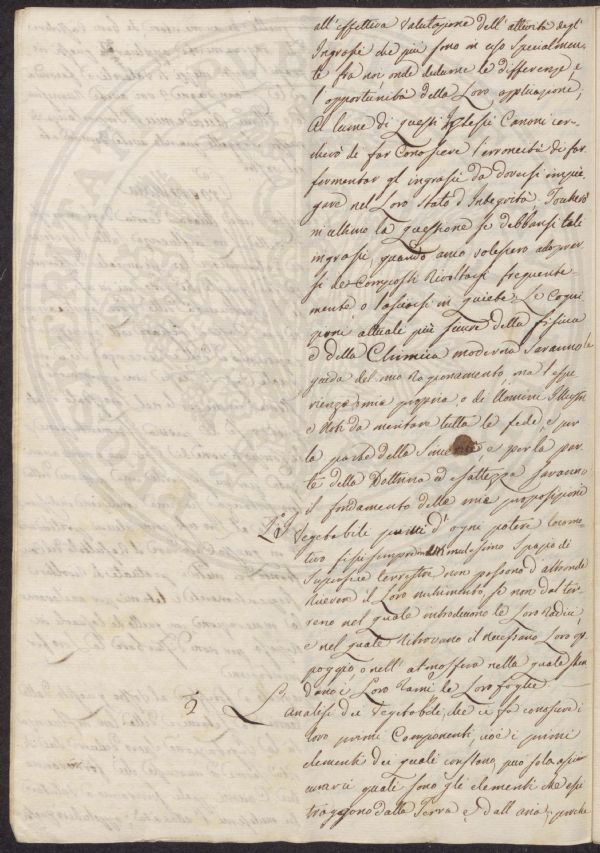 all'effettiva valutazione dell'attività degl'
Ingrassi che più sono in uso specialmen-
te fra noi, onde dedurne le differenze, e
l'opportunità della Loro applicazione,
Al lume di questi stessi Canoni cer-
cherò di far Conoscere l'erroneità di far
fermentar gl'ingrassi da doversi impie-
gare nel Loro stato d'Integrità. Toccherò
in ultimo la Questione se debbansi tali
ingrassi, quando anco volessero adoprar-
si decomposti Rivoltarsi frequente-
mente o lasciarsi in quiete. Le Cogni
zioni attuali più sicure della fisica
e della Chimica moderna saranno la
guida del mio Ragionamento, ma l'espe
rienza mia propria o di Uomini Illustri
e Noti da meritare tutta la fede, e per
la parte della e per la par
te della Dottrina ed esattezza saranno
il fondamento delle mie proposizioni
I Vegetabili privi d'ogni potere locomo-
tivo fissi sempre nel medesimo spazio di
superficie terrestre non possono d'altronde
Ricever il Loro nutrimento, se non dal ter-
reno nel quale introducono le Loro Radici,
e nel quale Ritrovano il necessario Loro ap
poggio, o nell'atmosfera nella quale sten
dono i Loro Rami le Loro foglie.
3 L'analisi dei Vegetabili, che ci fa conoscere i
loro primi Componenti, cioè i primi
elementi dei quali constano, può sola assi-
curarci quali sono gli elementi che essi
traggono dalla Terra, e dall'aria; poichè